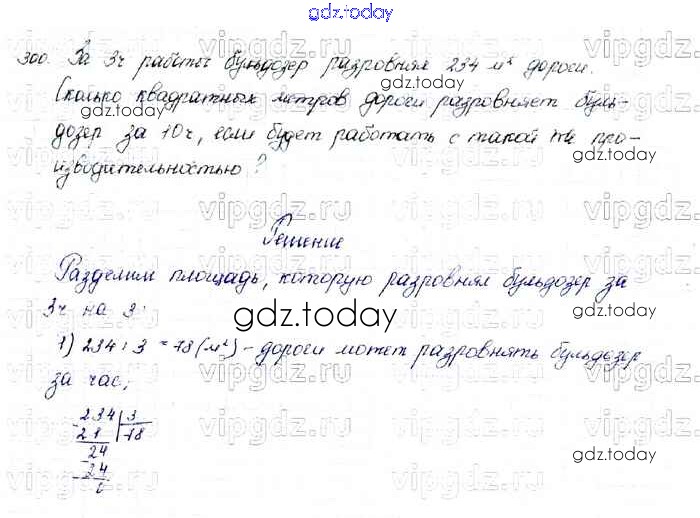 gdz.today
300. За 3ч работы бульдозер разровнял 234 м² дороги.
Сколько квадратных метров дороги разровняет буль-
дозер за 10ч, если будет работать с такой же про-
изводительностью?
Решение
Разделим площадь, которую разровнял бульдозер за
3ч на 3:
1) 234 : 3 = 78 (м²) - дороги может разровнять бульдозер
за час;
-234 | 3
21 | 78
-24
24
0